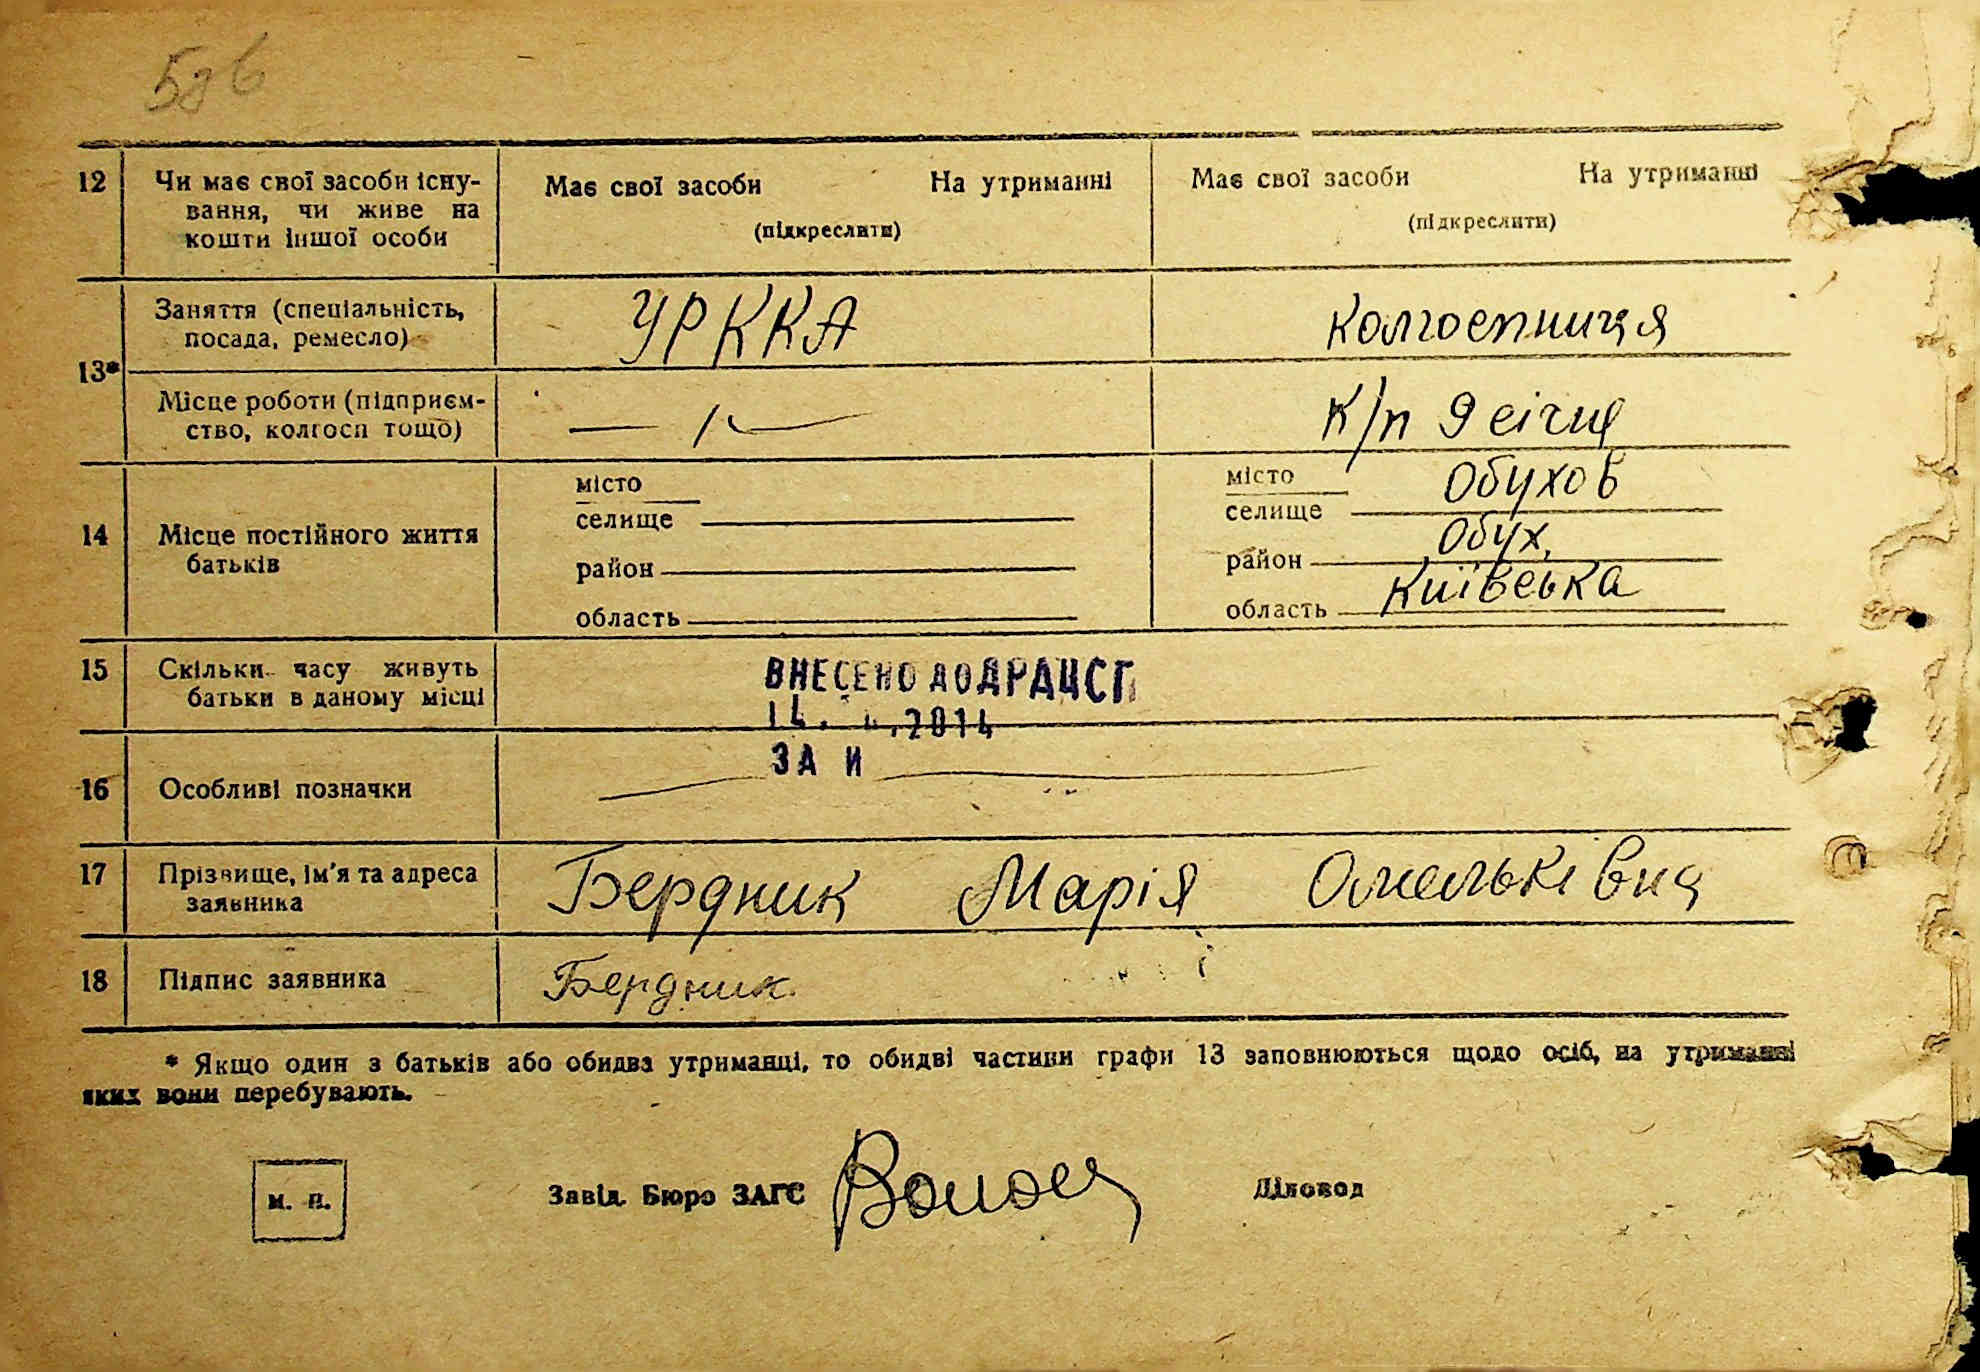 12 Чи має свої засоби існу-
вання, чи живе на
кошти іншої особи
Має свої засоби На утриманні
(підкреслити)
Має свої засоби На утриманні
(підкреслити)
13*
Заняття (спеціальність,
посада, ремесло)
УРККА
колгоспниця
Місце роботи (підприєм-
ство, колгосп тощо)
к/п 9 січня
14 Місце постійного життя
батьків
місто
селище
район
область
місто Обухов
селище
район Обух.
область Київська
15 Скільки часу живуть
батьки в даному місці
ВНЕСЕНО ДО ДРАЦСГ
2014
ЗА И
16 Особливі позначки
17 Прізвище, ім'я та адреса
заявника
Бердник Марія Омельківна
18 Підпис заявника
Бердник
* Якщо один з батьків або обидва утриманці, то обидві частини графи 13 заповнюються щодо осіб, на утриманні
яких вони перебувають.
м. п.
Завід. Бюро ЗАГС
Діловод